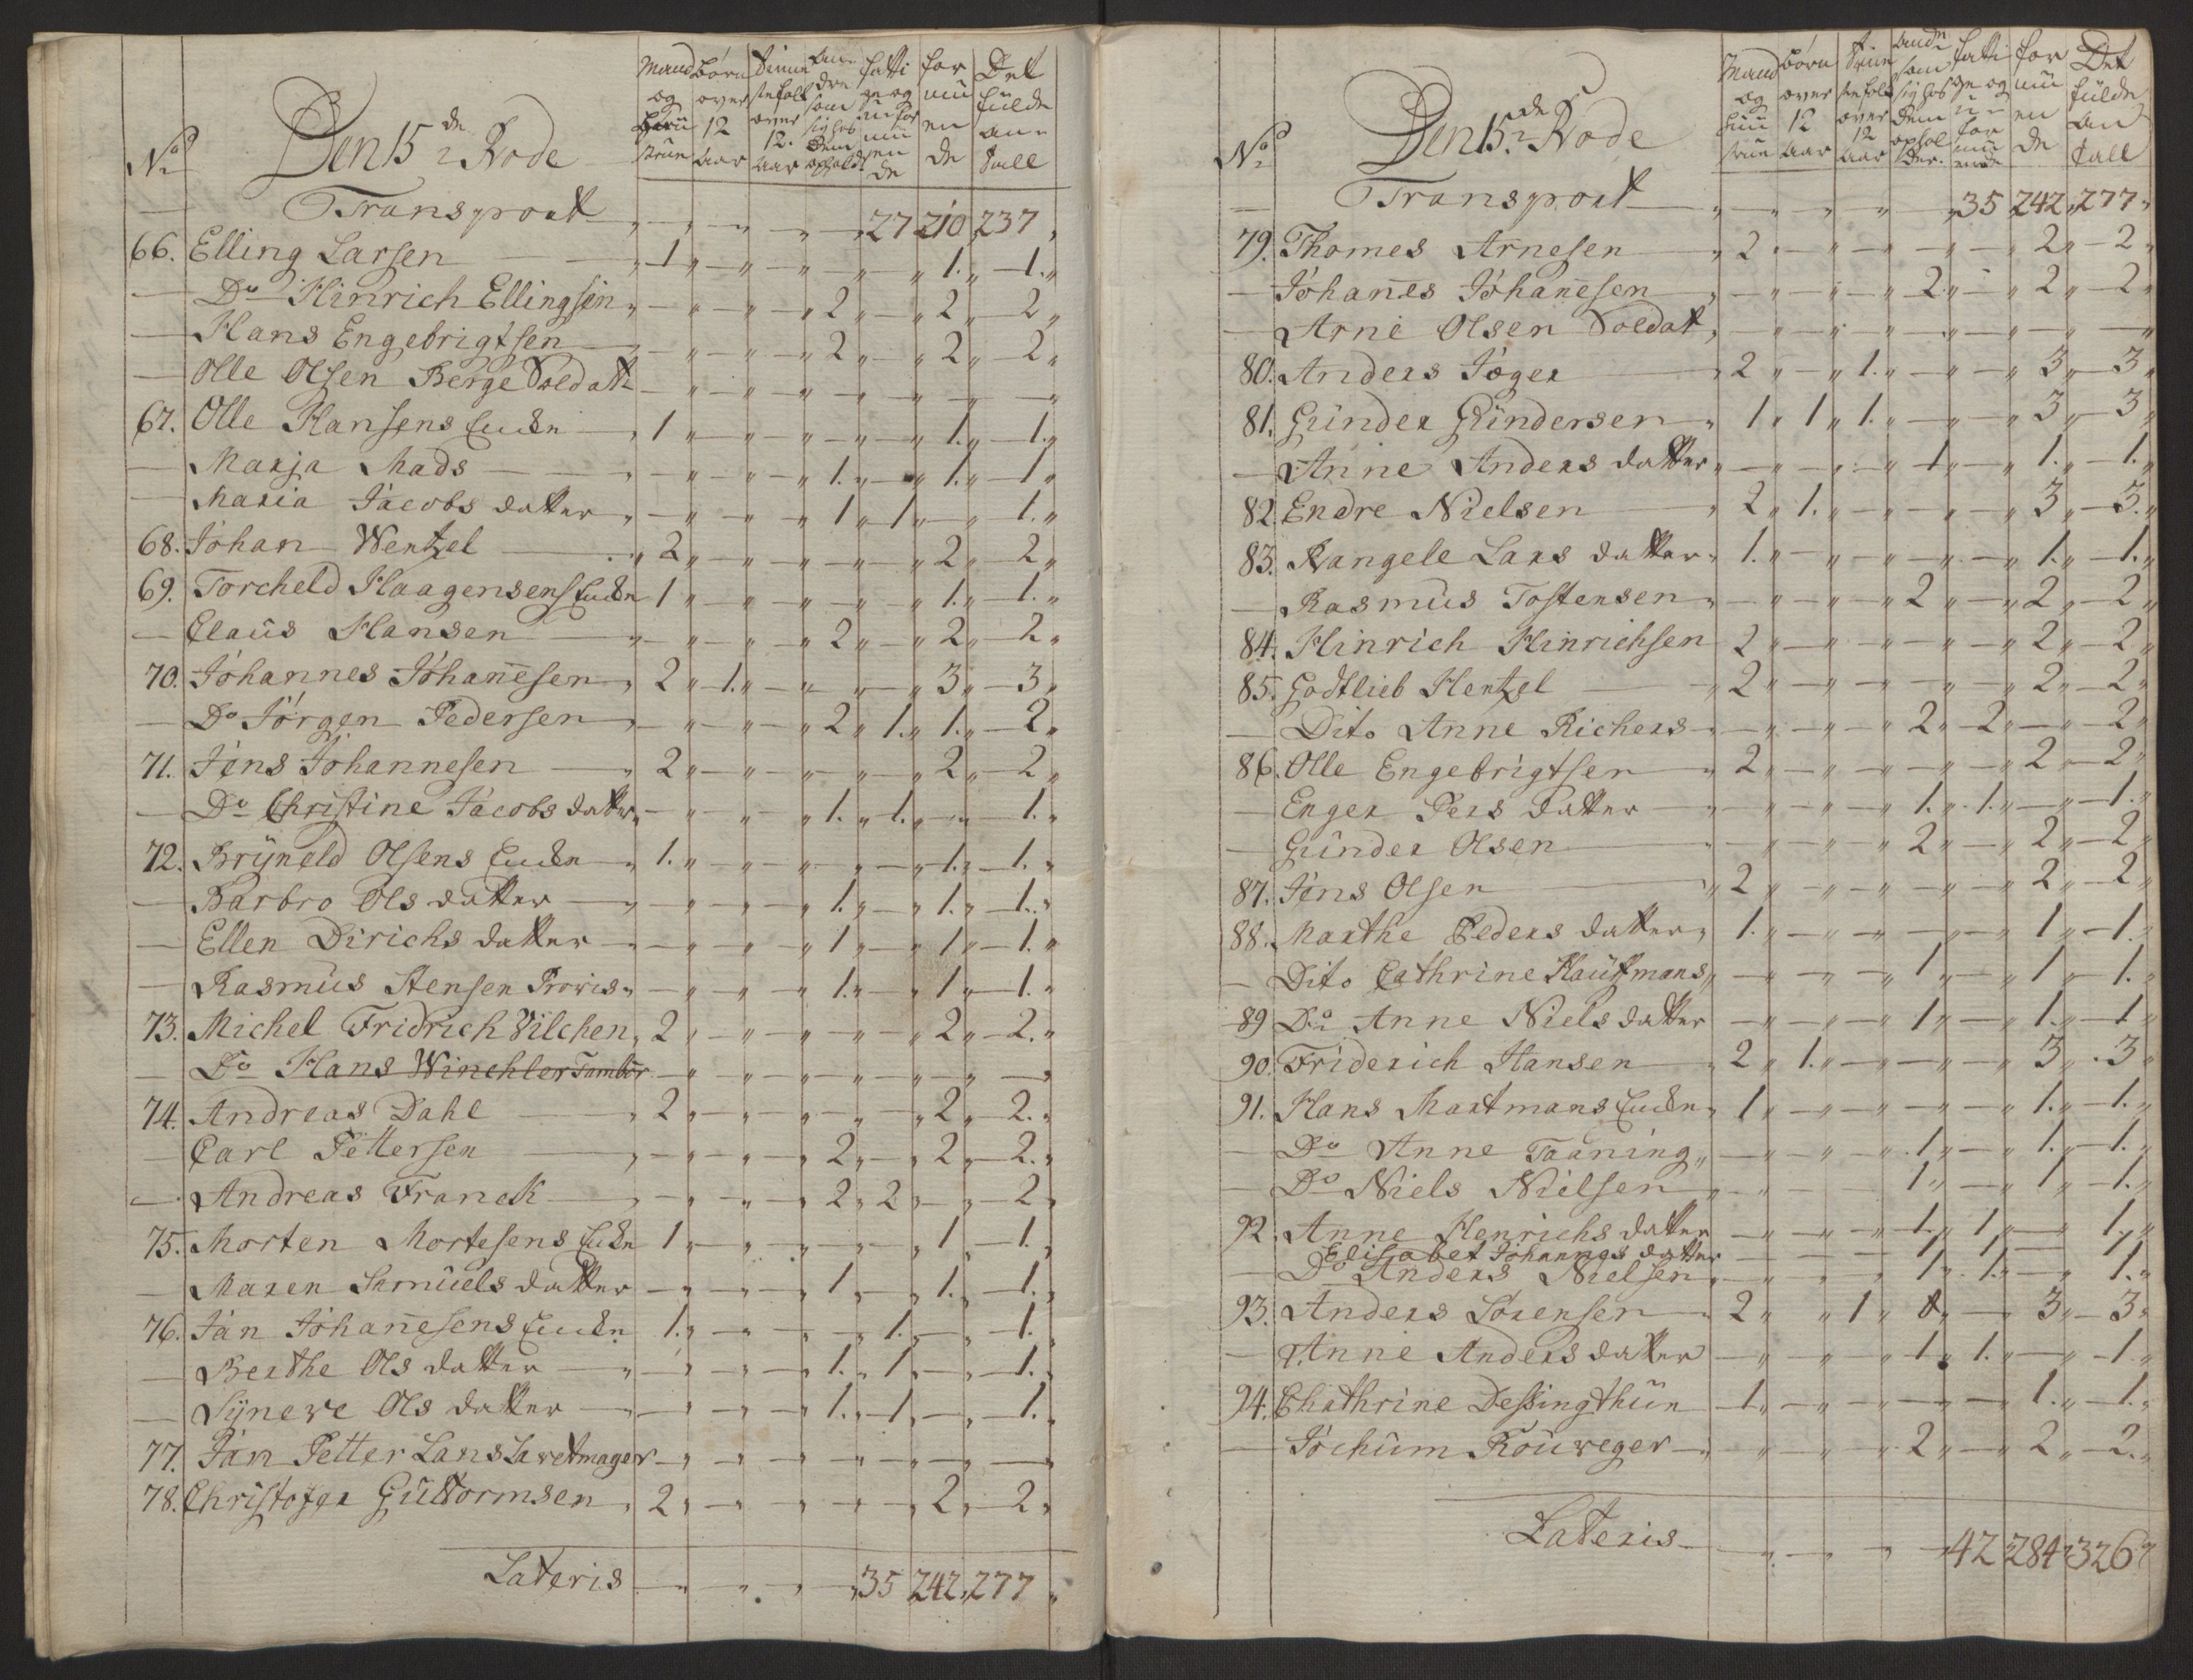 No Den 15de Rode
Mand og Hustrue
börn over 12 aar
tienistefolk over 12. aar
andre som sig hos dem opholder
fatti ge og u for mü en de
for mü en de
Det fulde an tall
Transport „ — „ — „ — „ — „ 27 210 „ 237 „
66. Elling Larsen 1 1. 1.
Do Hinrich Ellingsen 2 2 2
Hans Engebrigtsen 2 2 2
Olle Olsen Berge Soldat
67. Olle Hansens Encke 1 1. 1.
Marja Mads 1. 1. 1
Maria Jacobs datter 1 1 1.
68. Johan Wentzel 2 2 2
69. Torcheld Haagensens Encke 1 1. 1.
Claus Hansen 2 2 2
70. Johannes Johanesen 2 1. 3 3
Do Jörgen Pedersen 2 1. 1. 2
71. Jens Johannesen 2 2 2
Do Christine Jacobs datter 1. 1. 1.
72. Brÿneld Olsens Encke 1. 1. 1.
Barbro Ols datter 1. 1. 1.
Ellen Dirichs datter 1 1 1.
Rasmus Stensen Provis 1. 1 1.
73. Michel Fridrich Vilchen 2 2 2.
Do Hans Winchler Tambur
74. Andreas Dahl 2 2 2.
Carl Pettersen 2 2 2.
Andreas Franck 2 2 2
75. Morten Mortesens Encke 1 1 1.
Maren Samuels datter 1 1. 1.
76. Jan Johanesens Encke 1. 1. 1.
Berthe Ols datter 1. 1 1.
Sÿneve Ols datter 1. 1 1.
77. Jan Petter Lans Lavetmager
78. Christofer Guttormsen 2 2 2
Lateris 35 242 277
No Den 15de Rode
Mand og Hustrue
börn over 12 aar
tienistefolk over 12 aar
andre som sig hos dem opholder.
fatti ge og u for mü ende
for mü en de
Det fulde an tall
Transport 35 242 277
79. Thomes Arnesen 2 2 2
Johanes Johanesen 2 2 2
Arne Olsen Soldat
80. Anders Jöger 2 1. 3 3
81. Günder Gündersen 1 1 1. 3 3
Anne Anders datter 1 1. 1.
82. Endre Nielsen 2 1. 3 3.
83. Rangele Lars datter 1. 1. 1.
Rasmus Tostensen 2 2 2
84. Hinrich Hinrichsen 2 2 2
85. Godtlieb Hentzel 2 2 2
Dito Anne Richers 2 2 2
86. Olle Engebrigtsen 2 2 2
Enger Pers datter 1. 1. 1.
Günder Olsen 2 2 2
87. Jens Olsen 2 2 2
88. Marthe Peders datter 1. 1 1.
Dito Cathrine Kauffmans 1 1 1.
89 Do Anne Niels datter 1 1. 1
90. Friderich Hansen 2 1. 3 3
91. Hans Martmans Encke 1 1. 1.
Do Anne Taaning 1. 1. 1.
Do Niels Nielsen 1 1 1.
92. Anne Henrichs datter 1. 1 1.
Elisabet Johannes datter 1 1 1
Do Anders Nielsen 1 1. 1.
93. Anders Sörensen 2 1 3 3
Anne Anders datter 1 1. 1
94. Chathrine Dessingthun 1 1. 1.
Jochum Rouveger 2 2 2.
Lateris 42 284 326